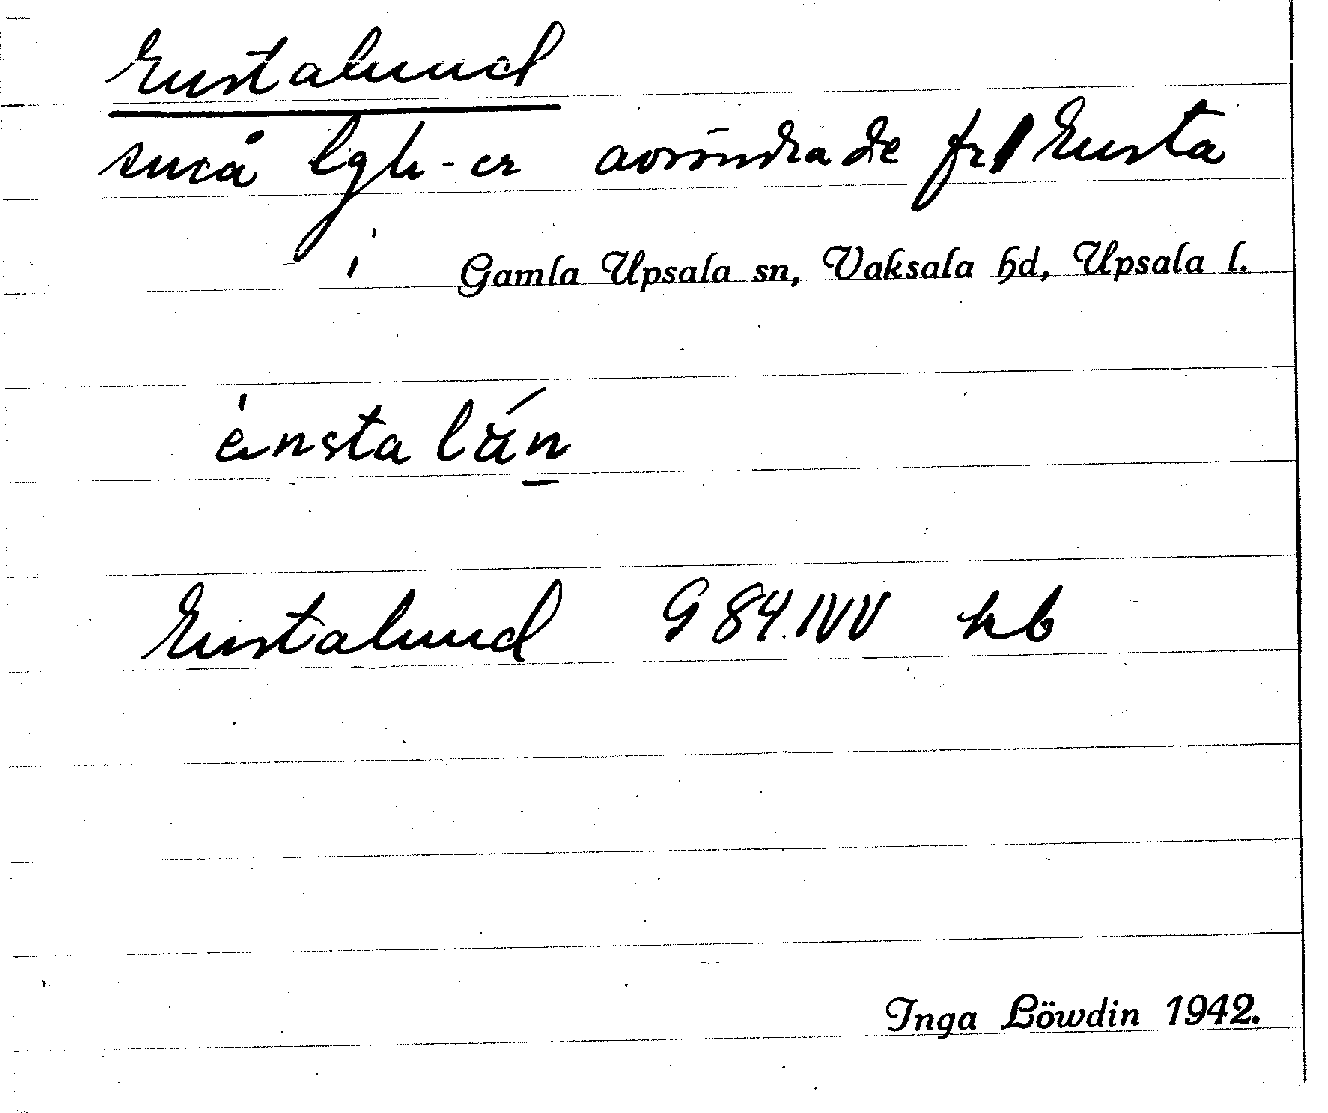 Enstalund
små lgh-er avsöndrade fr Ensta
i Gamla Upsala sn, Vaksala hd, Upsala l.
ènsta lún
Enstalund G 84.IV V hb
Inga Löwdin 1942.